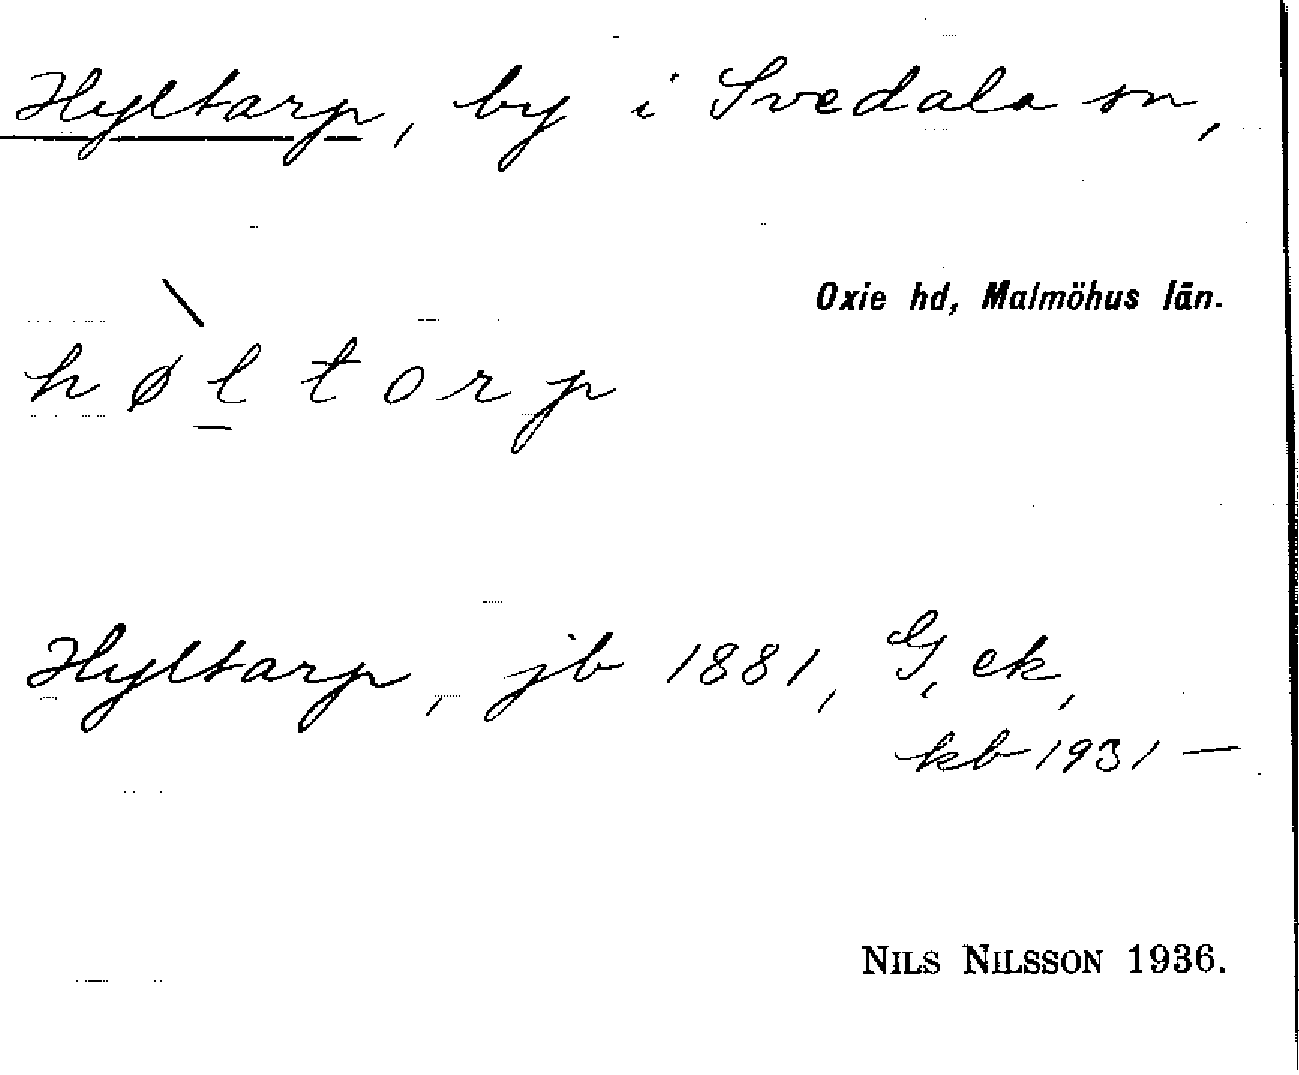 Hyltarp, by i Svedala sn,
Oxie hd, Malmöhus län.
hø̀l̲torp
Hyltarp, jb 1881, G, ek,
kb 1931 —
NILS NILSSON 1936.